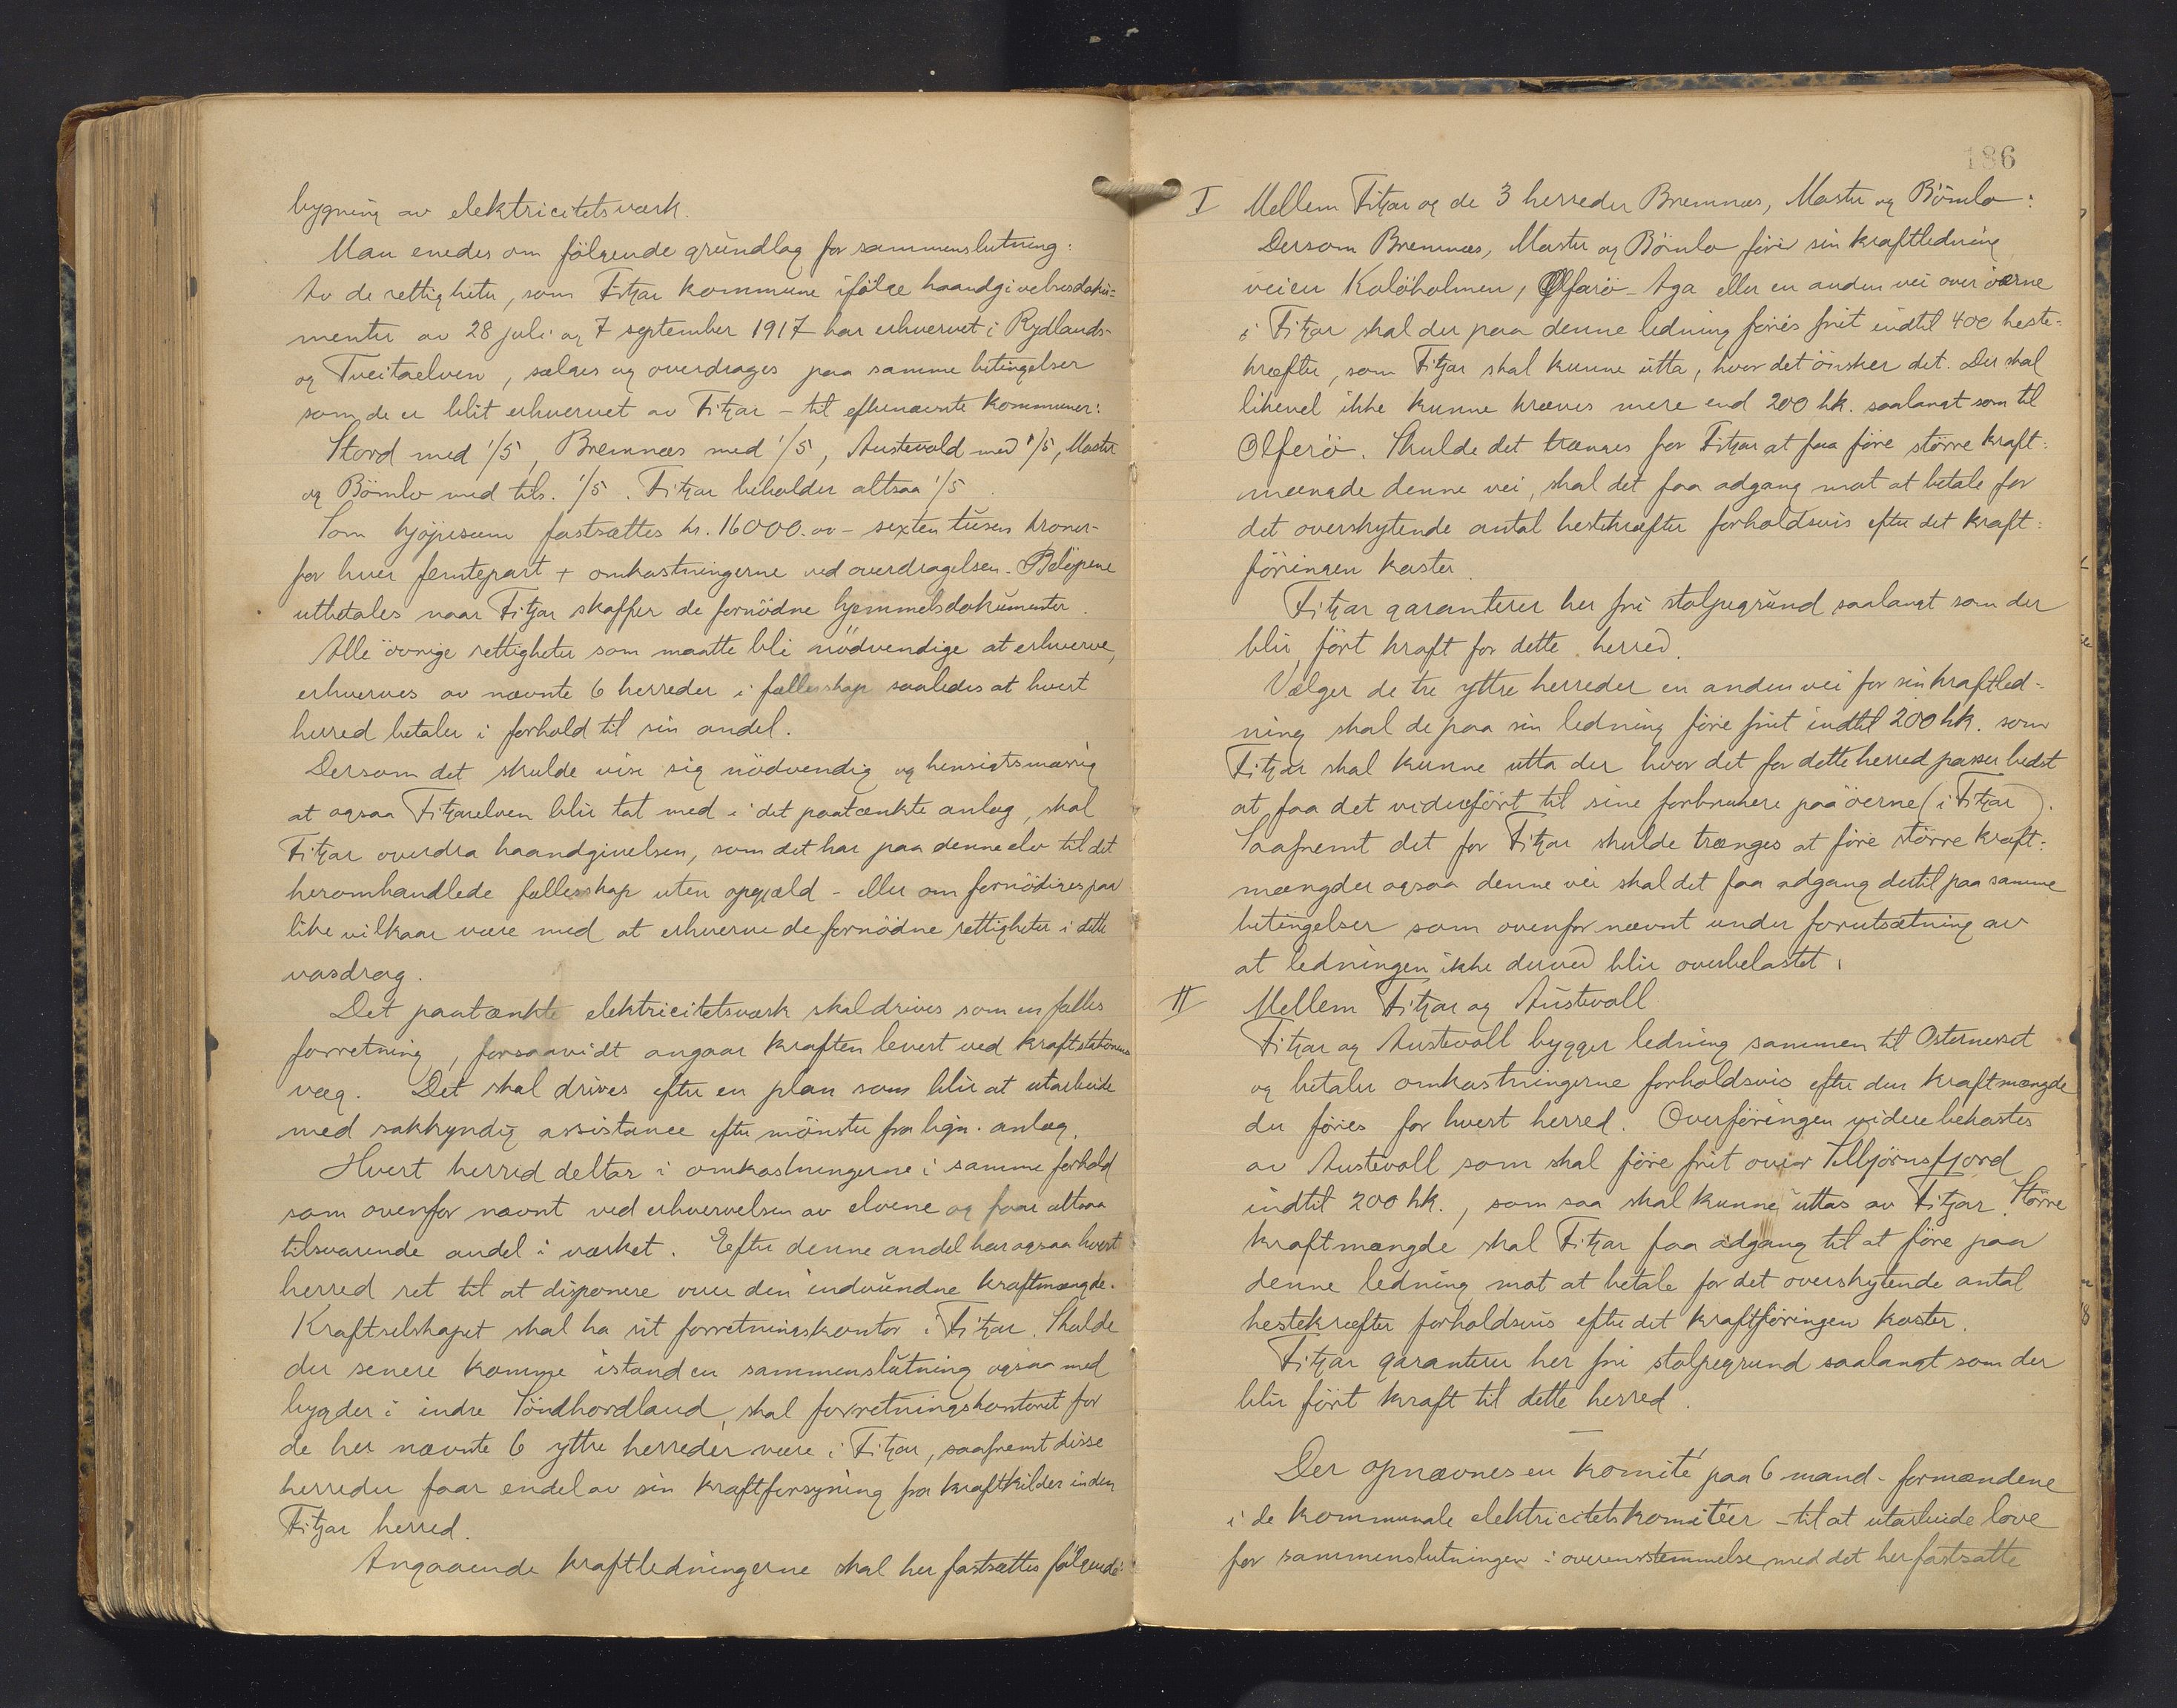 bygning av elektricitetsverk.
Man enedes om følgende grundlag for sammenslutning:
Av de rettigheter, som Fitjar kommune ifølge haandgivelsesdoku-
menter av 28 juli og 7 september 1917 har erhvervet i Rydlands-
og Tveitaelven, sælges og overdrages paa samme betingelser
som de er blit erhvervet av Fitjar – til eftenævnte kommuner:
Stord med 1/5, Bremnes med 1/5, Austevold med 1/5, Moster
og Bömlo med tils. 1/5. Fitjar beholder altsaa 1/5.
Som kjøpesum fastsættes kr. 16000.oo – sexten tusen kroner-
for hver femtepart + omkostningerne ved overdragelsen. Beløpene
utbetales naar Fitjar skaffer de fornödne hjemmelsdokumenter.
Alle övrige rettigheter som maatte bli nödvendige at erhverve,
erhverves av nævnte 6 herreder i fællesskap saaledes at hvert
herred betaler i forhold til sin andel.
Dersom det skulde vise sig nödvendig og hensigtsmæssig
at ogsaa Fitjarelven blir tat med i det paatænkte anlæg, skal
Fitjar overdra haandgivelsen, som det har paa denne elv til det
heromhandlede fællesskap uten opgjæld – eller om fornödiges paa
like vilkaar være med at erhverve de fornödne rettigheter i dette
vasdrag.
Det paatænkte elektricitetsverk skal drives som en fælles
forretning, forsaavidt angaar kraften levert ved kraftstationens
væg. Det skal drives efter en plan som blir at utarbeide
med sakkyndig assistance efter mönster fra lign. anlæg.
Hvert herred deltar i omkostningerne i samme forhold
som ovenfor nævnt ved erhvervelsen av elvene og faar altsaa
tilsvarende andel i verket. Efter denne andel har ogsaa hvert
herred ret til at disponere over den indvundne kraftmængde.
Kraftselskapet skal ha sit forretningskontor i Fitjar. Skulde
der senere komme istand en sammenslutning ogsaa med
bygder i indre Söndhordland, skal forretningskontoret for
de her nævnte 6 yttre herreder være i Fitjar, saafremt disse
herreder faar endel av sin kraftforsyning fra kraftkilder inden
Fitjar herred.
Angaaende kraftledningerne skal her fastsættes følgende:
186
I Mellem Fitjar og de 3 herreder Bremnes, Moster og Bömlo:
Dersom Bremnes, Moster og Bömlo före sin kraftledning
veien Kalöholmen, Olferö – Aga eller en anden vei over öerne
i Fitjar skal der paa denne ledning föres frit indtil 400 heste-
kræfter, som Fitjar skal kunne utta, hvor det önsker det. Der skal
likevel ikke kunne kræves mere end 200 hk. saalangt som til
Olferö. Skulde det trænges for Fitjar at faa före större kraft-
mængde denne vei, skal det faa adgang mot at betale for
det overskytende antal hestekræfter forholdsvis efter det kraft-
föringen koster.
Fitjar garanterer her fri stolpegrund saalangt som der
blir fört kraft for dette herred.
Vælger de tre yttre herreder en anden vei for sin kraftled-
ning skal de paa sin ledning före frit indtil 200 hk. som
Fitjar skal kunne utta der hvor det for dette herred passer bedst
at faa det videreført til sine forbrukere paa öerne (i Fitjar).
Saafremt det for Fitjar skulde trænges at före större kraft-
mængder ogsaa denne vei skal det faa adgang dertil paa samme
betingelser som ovenfor nævnt under forutsætning av
at ledningen ikke derved blir overbelastet.
II Mellem Fitjar og Austevoll
Fitjar og Austevoll bygger ledning sammen til Osternesset
og betaler omkostningerne forholdsvis efter den kraftmængde
der föres for hvert herred. Overföringen videre bekostes
av Austevoll som skal före frit over Selbjörnsfjord
indtil 200 hk., som saa skal kunne uttas av Fitjar. Större
kraftmængde skal Fitjar faa adgang til at före paa
denne ledning mot at betale for det overskytende antal
hestekræfter forholdsvis efter det kraftföringen koster.
Fitjar garanterer her fri stolpegrund saalangt som der
blir fört kraft til dette herred.
Der opnævnes en komité paa 6 mand – formændene
i de kommunale elektricitetskomitéer – til at utarbeide love
for sammenslutningen i overensstemmelse med det her fastsatte